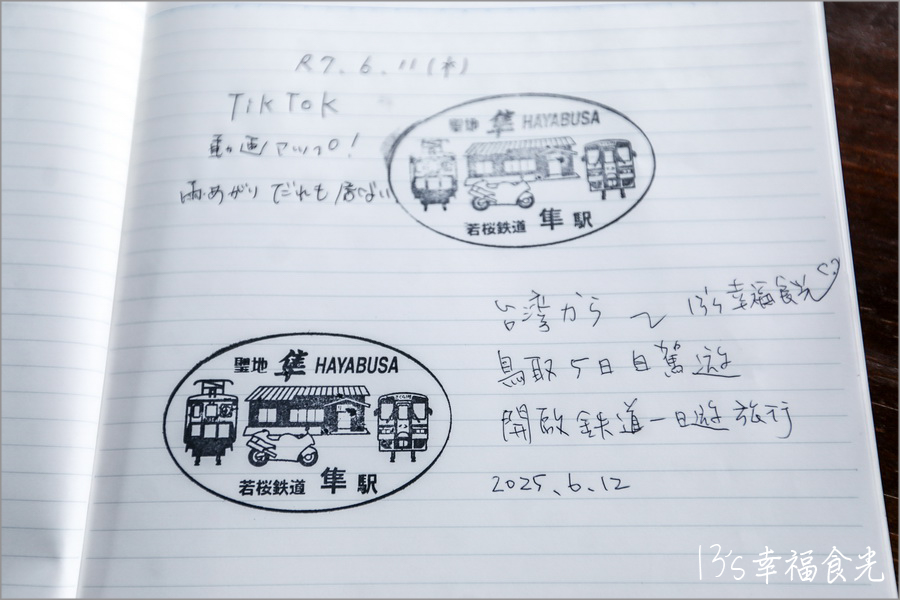 R7.6.11(水)
TikTok
動画アップ!
雨あがり だれも居ない
聖地 隼 HAYABUSA
若桜鉄道 隼 駅
台湾から ~ 13's幸福食光
鳥取5日自駕遊
開啟鉄道一日遊旅行
2025.6.12
聖地 隼 HAYABUSA
若桜鉄道 隼 駅
13's幸福食光